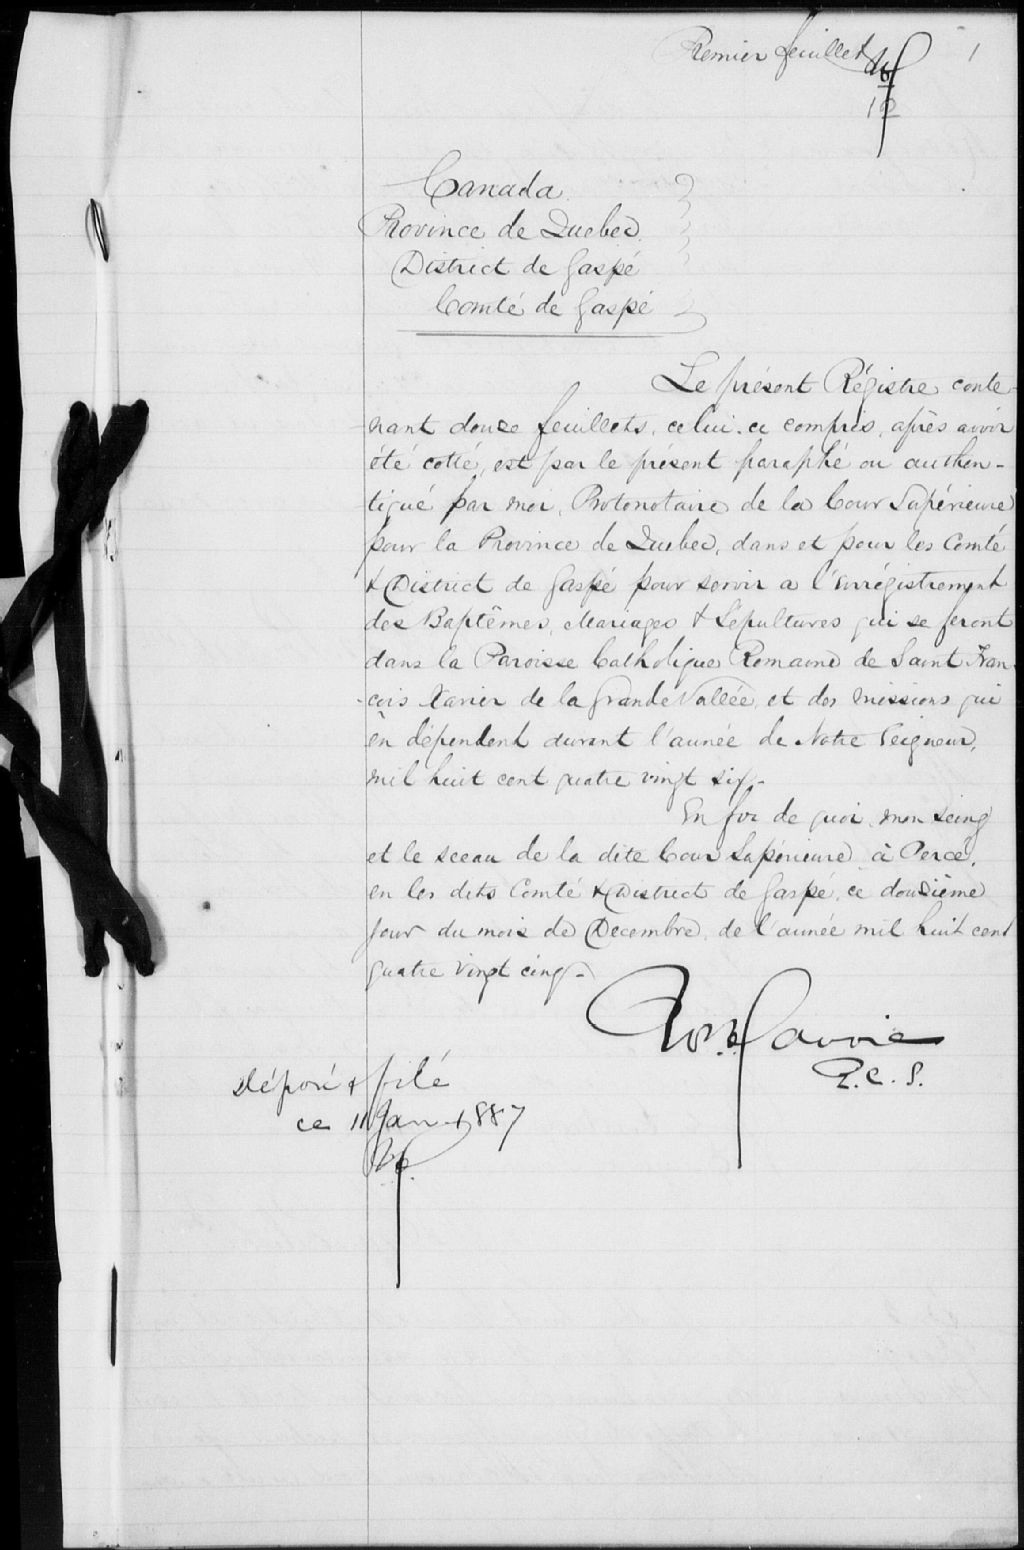 Premier feuillet
1
12
Canada
Province de Quebec
District de Gaspé
Comté de Gaspé
Le présent Régistre conte-
nant douze feuillets, celui-ci compris, après avoir
été cotté, est par le présent paraphé ou authen-
tiqué par moi, Protonotaire de la Cour Supérieure
pour la Province de Quebec, dans et pour les Comté
& District de Gaspé pour servir a l'enrégistrement
des Baptêmes, Mariages & Sépultures qui se feront
dans la Paroisse Catholique Romaine de Saint Fran-
-cois Xavier de la Grande Vallée, et des missions qui
en dépendent durant l'année de Notre Seigneur,
mil huit cent quatre vingt six.-
En foi de quoi, mon seing
et le sceau de la dite Cour Supérieure, à Percé,
en les dits Comté & District de Gaspé, ce douzième
jour du mois de Decembre, de l'année mil huit cent
quatre vingt cinq.-
P.C.S.
Déposé & filé
ce 11 Jan 1887